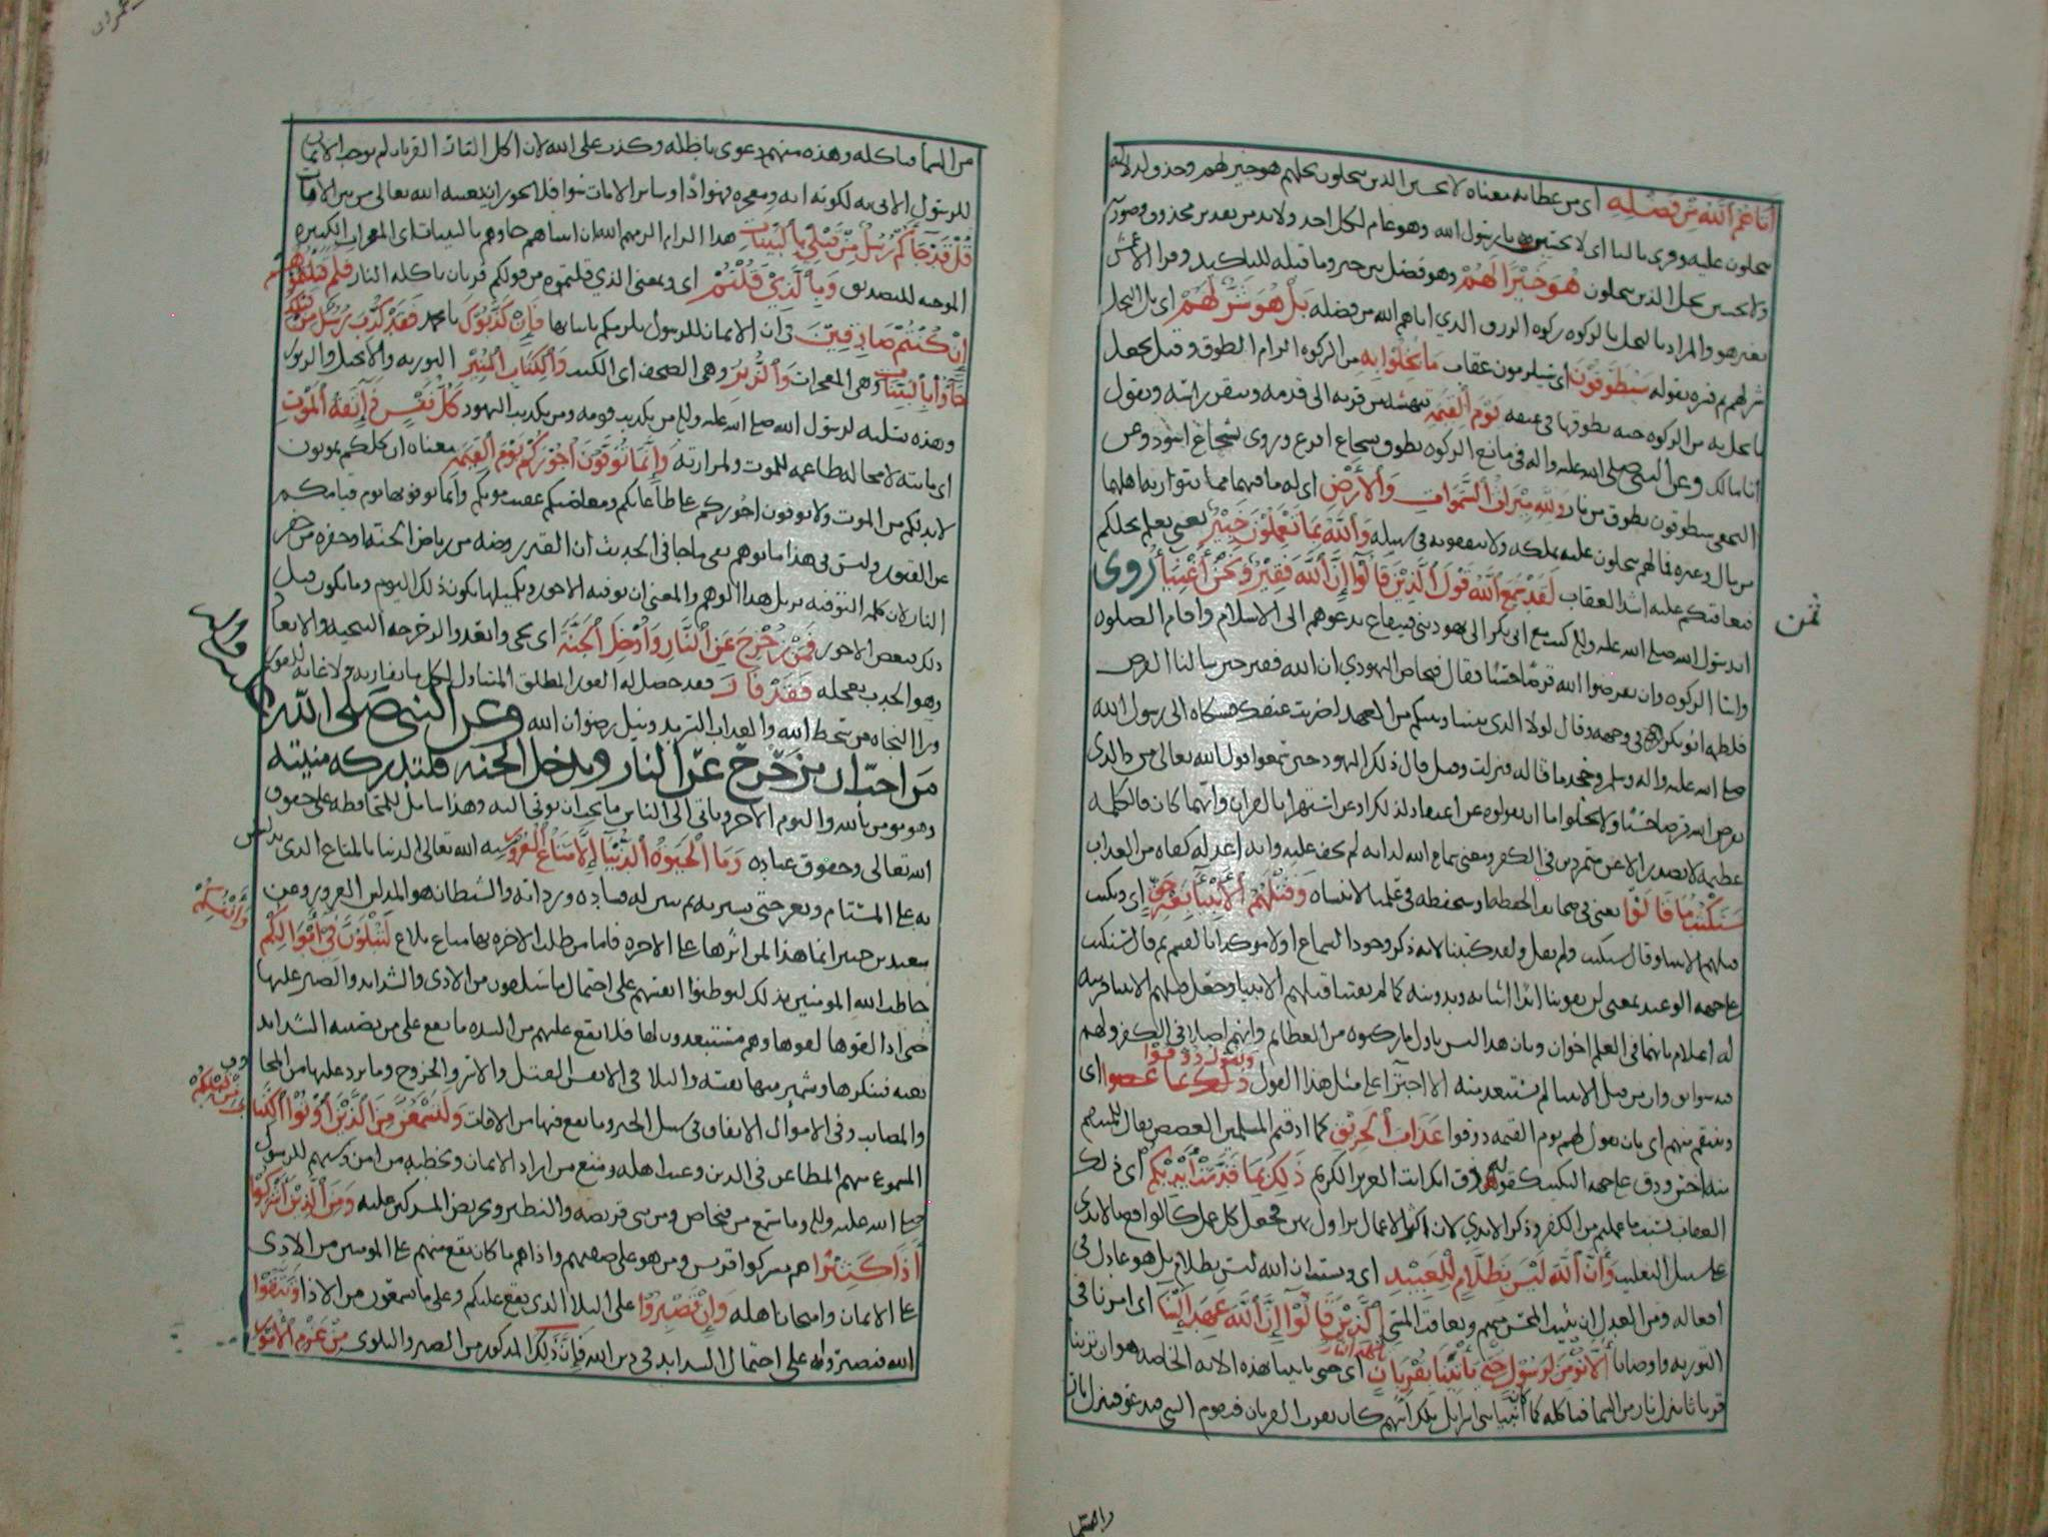 أتاهم الله من فضله اى من عطائه معناه لا تحسبن الذين يبخلون بخلهم هو خيرلهم وحذف لدلالة
يبخلون عليه وقرى بالتا اى لا تحسبن يا رسول الله وهو عام لكل احد ولا بد من تقدير محذوف وصورته
ولا تحسبن بخل الذين يبخلون هو خيرا لهم وهو فصل بين خبر وما قبله للتاكيد وقرا الاعمش
بغير هو والمراد بالبخل بالزكوه زكوه الرزق الذي اتاهم الله من فضله بل هو شر لهم اى بل البخل
شر لهم ثم فسره بقوله سيطوقون اى سيلزمون عقاب ما بخلوا به من الزكوه الزام الطوق وقيل يجعل
ما بخل به من الزكوه حيه يطوقها فى عنقه يوم القيمة تنهشه من قرنه الى قدمه وتنقر راسه وتقول
انا مالك وعن النبى صلى الله عليه واله فى مانع الزكوه يطوق بشجاع اقرع وروى بشجاع اسود وعن
النخعى سيطوقون بطوق من نار ولله ميراث السموات والارض اى له ما فيهما مما يتوارثه اهلهما
من مال وغيره فما لهم يبخلون عليه بملكه ولا ينفقونه فى سبيله والله بما تعملون خبير يعنى يعلم بخلكم
فيعاقبكم عليه اشد العقاب لقد سمع الله قول الذين قالوا إن الله فقير ونحن أغنيا روى
ان رسول الله صلى الله عليه وسلم كتب مع ابى بكر الى يهود بنى قينقاع يدعوهم الى الاسلام واقام الصلوه
وايتا الزكوه وان يقرضوا الله قرضا حسنا فقال فنحاص اليهودي ان الله فقير حين سالنا القرض
فلطمه ابو بكر فى وجهه وقال لولا الذى بيننا وبينكم من العهد لضربت عنقك فشكاه الى رسول الله
صلى الله عليه واله وسلم وجحد ما قاله فنزلت وقيل قال ذلك اليهود حين سمعوا قول الله تعالى من ذا الذى
يقرض الله قرضا حسنا ولا يخلوا اما ان يقولوه عن اعتقاد لذلك او عن استهزا بالقران وايهما كان فالكلمه
عظيمه لا تصدر الا عن متمردين فى الكفر ومعنى سماع الله له انه لم يخف عليه وانه اعد له كفاه من العذاب
سنكتب ما قالوا يعنى فى صحايف الحفظه او سنحفظه فى علمنا لا ننساه وقتلهم الانبيا بغير حق اى ونكتب
قتلهم الانبيا وقال سنكتب ولم يقل ولقد كتبنا لانه ذكر وجود السماع اولا موكدا بالقسم ثم قال سنكتب
على جهه الوعيد بمعنى لن يفوتنا ابدا اثباته وتدوينه كما لم يفتنا قتلهم الانبيا وجعل قتلهم الانبيا قرينه
له اعلام بانهما فى العظم اخوان وبان هذا ليس باول ما ركبوه من العظائم وانهم اصلا فى الكفر ولهم
فيه سوابق وان من قتل الانبيا لم يستبعد منه الاجترا على مثل هذا القول ونقول ذوقوا اى
وننتقم منهم اى بان نقول لهم يوم القيمه ذوقوا عذاب الحريق كما اذقتم المسلمين الغصص يقال للمنتقم
منه احس وذق على جهه التبكيت كقوله ذق انك انت العزيز الكريم ذلك بما قدمت أيديكم اى ذلك
العقاب بسبب ما عملتم من الكفر وذكر الايدي لان اكثر الاعمال يزاول بهن فجعل كل عمل كالواقع بالايدى
على سبيل التغليب وأن الله ليس بظلام للعبيد اى وبسبب ان الله ليس بظلام بل هو عادل فى
افعاله ومن العدل ان يثيب المحسن منهم ويعاقب المسى الذين قالوا إن الله عهد إلينا اى امرنا فى
التوريه واوصانا ألا نومن لرسول حتى يأتينا بقربان تاكله النار اى حتى ياتينا بهذه الايه الخاصه هو ان يرينا
قربانا تنزل نار من السما فتاكله كما كان انبيا بنى اسرايل تلك ايتهم كان يقرب القربان فيقوم النبى فيدعو فتنزل نار
ثمن
من السما فتاكله وهذه منهم دعوى باطله وكذب على الله لان اكل النار القربان لم يوجب الايمان
للرسول الاتى به لكونه ايه ومعجزه فهو اذا وساير الايات سوا فلا يجوز ان يعينه الله تعالى من بين الايات
قل قد جاكم رسل من قبلي بالبينات هذا الزام الزمهم الله ان انبياهم جاوهم بالبينات اى المعجزات الكثيره
الموجبه للتصديق وبالذي قلتم اى وبمعنى الذي قلتموه من قولكم قربان تاكله النار فلم قتلتموهم
إن كنتم صادقين فى ان الايمان للرسول يلزمكم باتيانها فان كذبوك يا محمد فقد كذب رسل من قبلك
جاوا بالبينات وهى المعجزات والزبر وهى الصحف اى الكتب والكتاب المنير التوريه والانجيل والزبور
وهذه تسليه لرسول الله صلى الله عليه وسلم من تكذيب قومه ومن تكذيب اليهود كل نفس ذآئقة الموت
اى ماسته لا محاله بطاعمه للموت ولمرارته وإنما توفون أجوركم يوم القيمه معناه ان كلكم يموتون
لا بد لكم من الموت ولا توفون اجوركم على طاعاتكم ومعاصيكم عقيب موتكم وانما توفونها يوم قيامكم
عن القبور وليس فى هذا ما يوهم نفى ما جا فى الحديث ان القبر روضه من رياض الجنه او حفره من حفر
النار لان كلمه التوفيه تزيل هذا الوهم والمعنى ان توفيه الاجور وتكميلها يكون ذلك اليوم وما يكون قبل
ذلك فبعض الاجور فمن زحزح عن النار وأدخل الجنة اى نجى وابعد والزحزحه التنحيه والابعاد
وهو الجذب بعجله فقد فاز فقد حصل له الفوز المطلق المتناول لكل ما يفاز به ولا غايه للفوز
ورا النجاه من سخط الله والعذاب السرمد ونيل رضوان الله وعن النبى صلى الله
عليه وسلم واله
من احب ان يزحزح عن النار ويدخل الجنه فلتدركه منيته
وهو مومن بالله واليوم الاخر وياتى الى الناس ما يحب ان يوتى اليه وهذا شامل للمحافظه على حقوق
الله تعالى وحقوق عباده وما الحيوة الدنيا إلا متاع الغرور شبه الله تعالى الدنيا بالمتاع الذى يدلس
به على المستام ويغر حتى يشتريه ثم تبين له فساده ورداته والشيطان هو المدلس الغرور وعن
سعيد بن جبير انما هذا لمن اثرها على الاخره فاما من طلب الاخره بها متاع بلاغ لتبلون فى أموالكم
وأنفسكم
خاطب الله المومنين بذلك ليوطنوا انفسهم على احتمال ما سيلقون من الاذى والشدايد والصبر عليها
حتى اذا لقوها لقوها وهم مستعدون لها فلا يقع عليهم من الشده ما يقع على من يصيبه الشدايد
بغته فينكرها وتشمئز منها نفسه والبلا فى الانفس القتل والاسر والجروح وما يرد عليها من المخاوف
والمصايب وفى الاموال الانفاق فى سبل الخير وما يقع فيها من الافات ولتسمعن من الذين أوتوا الكتاب
من قبلكم
المسموع منهم المطاعن فى الدين وعيب اهله ومنع من اراد الايمان وتخطيه من امن وسبهم للرسول
صلى الله عليه وسلم وما سمع من فنحاص ومن بنى قريضه والنظير وتحريض المشركين عليه ومن الذين أشركوا
أذى كثيرا هم مشركوا قريش ومن هو على صفتهم واذاهم ما كان يقع منهم على المومنين من الاذى
على الايمان وامتحان اهله وإن تصبروا على البلا الذى يقع عليكم وعلى ما تسمعون من الاذا وتتقوا
الله فتصبروا له على احتمال الشدايد فى دين الله فإن ذلك المذكور من الصبر والبلوى من عزم الأمور